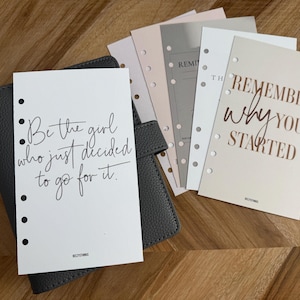 Be the girl
who just decided
to go for it.
REMEMBE
why YOU
STARTED